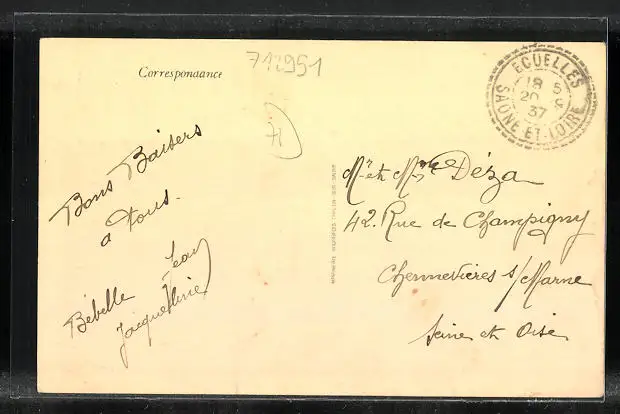 Correspondance
712951
71
ECUELLES
18 5
20
37
SAÔNE-ET-LOIRE
Bons Baisers
a Tous.
Jean
Bébelle
Jacqueline
Mr et Mme Déza
42. Rue de Champigny
Chennevières s/Marne
Seine et Oise